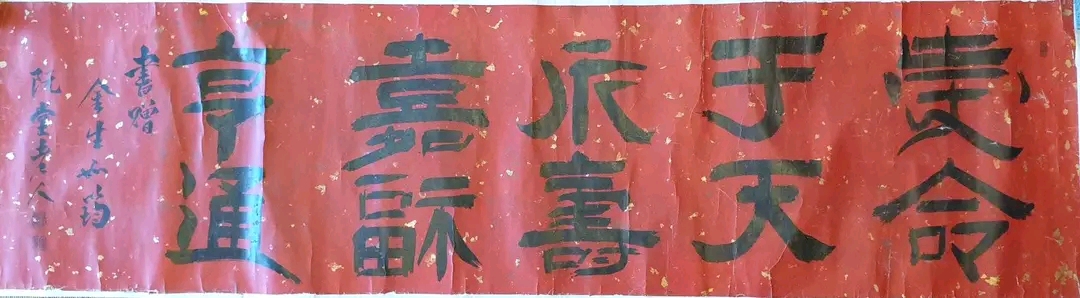 受命
于天
永壽
嘉福
亨通
書贈
金生如
阮堂老人